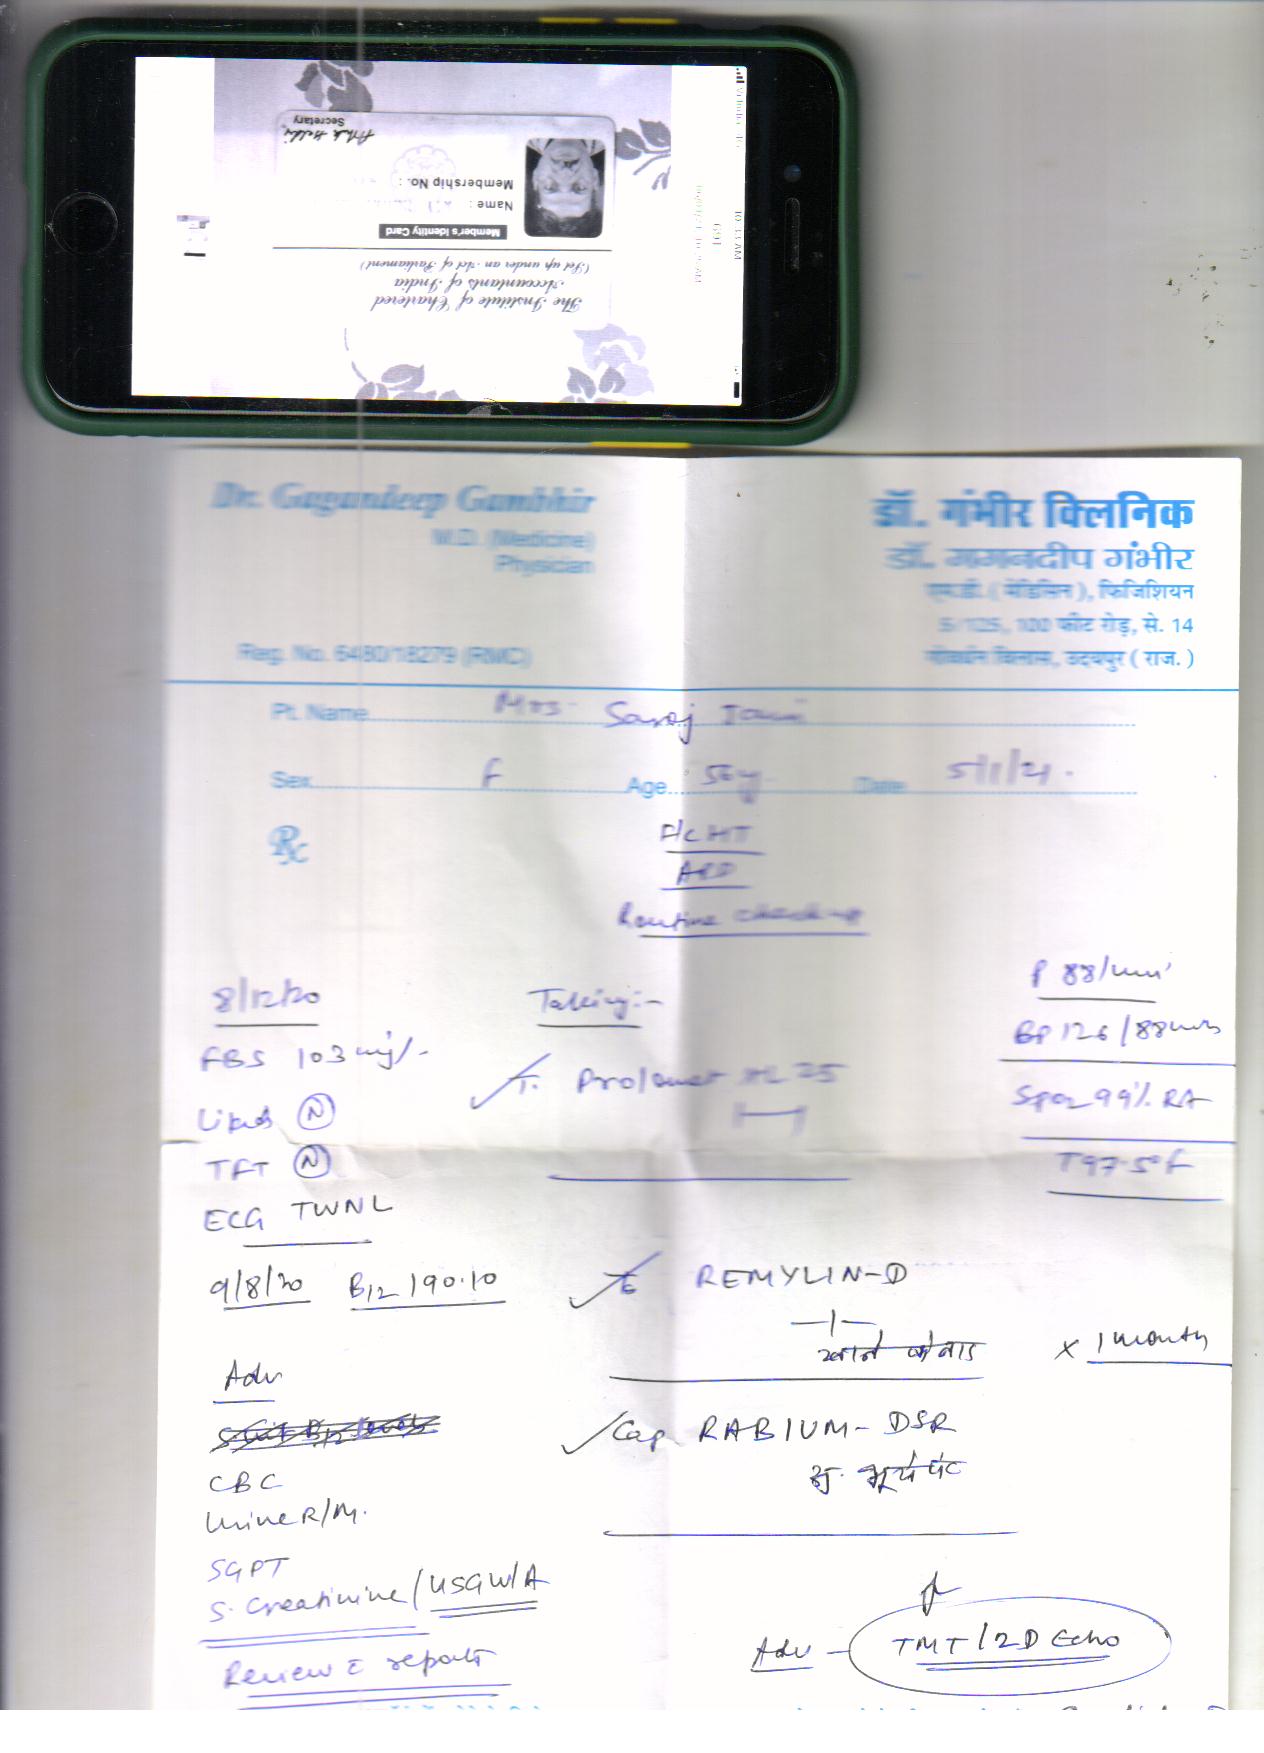 The Institute of Chartered
Accountants of India
(Set up under an Act of Parliament)
Member's Identity Card
Name :
Membership No. :
Secretary
Dr. Gagandeep Gambhir
M.D. (Medicine)
Physician
Reg. No. 6480/18279 (RMC)
डॉ. गंभीर क्लिनिक
डॉ. गगनदीप गंभीर
एम.डी. ( मेडिसिन ), फिजिशियन
5/125, 100 फीट रोड़, से. 14
गोवर्धन विलास, उदयपुर ( राज. )
Pt. Name Mrs. Saroj
Sex F Age 56y Date 5/1/21.
Rx
HT
Routine check-up
8/12/20
FBS 103 mg/-
Lipids (N)
TFT (N)
ECG TWNL
9/8/20 B12 190.10
Adv
CBC
Urine R/M.
SGPT
S. Creatinine / USG W/A
Review c reports
Taking:-
T. Prolomet XL 25
REMYLIN-D
खाने के बाद
x 1 month
Cap RABIUM-DSR
भूखे पेट
P 88/min
BP 126/88
SpO2 99% RA
T 97.5°F
Adv - TMT / 2D Echo